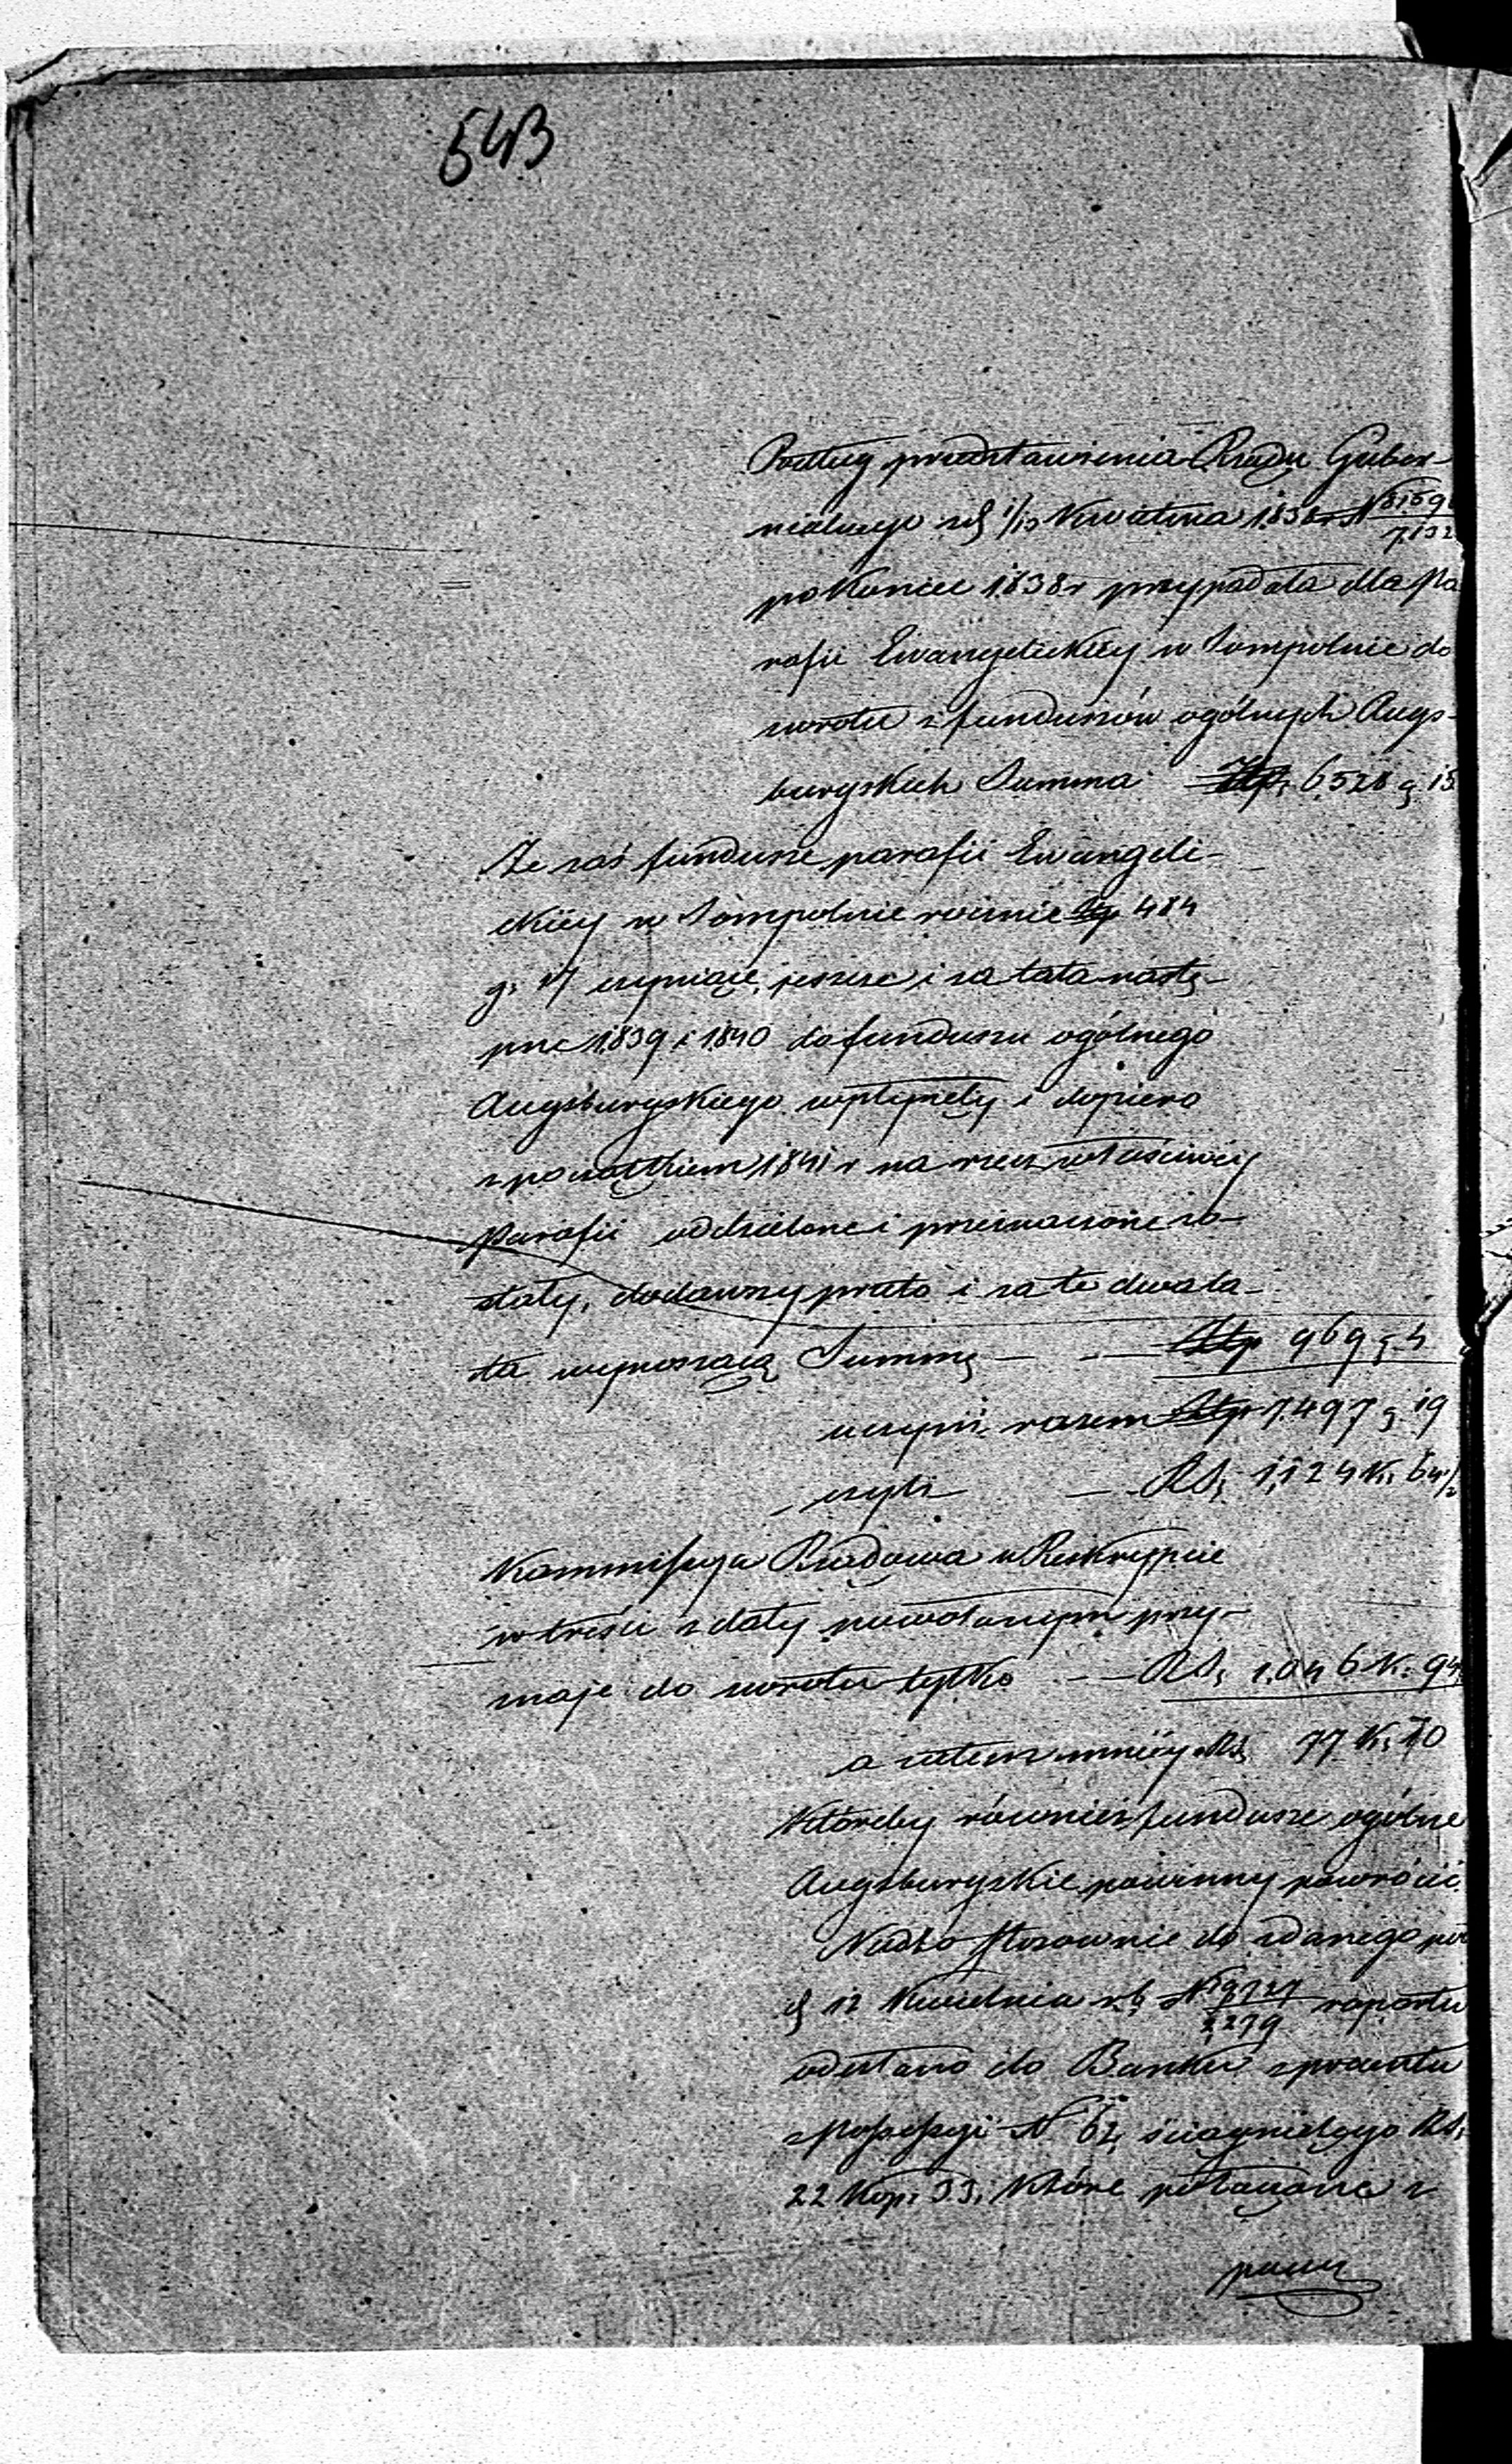 543
Podług przedstawienia Rządu Guber-
nialnego z d 1/13 Kwietnia 1838 r N 8169
7132
po koniec 1838 r przypadała dla Pa
rafii Ewangelickiey w Sompolnie do
zwrotu z funduszów ogólnych Augs-
burgskich Summa Złp. 6528 g 15
Że zaś fundusze parafii Ewangeli-
ckiey w Sompolnie rocznie Złp 484
g. 17 czyniące, jeszcze i za lata nastę-
pne 1839 i 1840 do funduszu ogólnego
Augsburgskiego wpłynęły i dopiero
z początkiem 1841 r na rzecz właściwéy
parafii oddzielone i przeznaczone zo-
stały, dodawszy przeto i za te dwa la-
ta wynoszącą Summę — — Złp 969 g 4
uczyni razem Złp 7.497 g. 19
czyli — — RS. 1,124 k. 64 1/2
Kommissya Rządowa w Reskrypcie
w treści z daty powołanym przy-
maje do zwrotu tylko — — RS. 1.046 k. 94
a zatem mniéy RS. 77 k. 70
któreby również fundusze ogólne
Augsburgskie powinny powrócić.
Nadto stosownie do zdanego pod
d 12 Kwietnia r.b. N 19727 raportu
2279
odesłano do Banku z procentu
z possessyi N 62, ściągniętego RS.
22 kop. 33. które połączone z